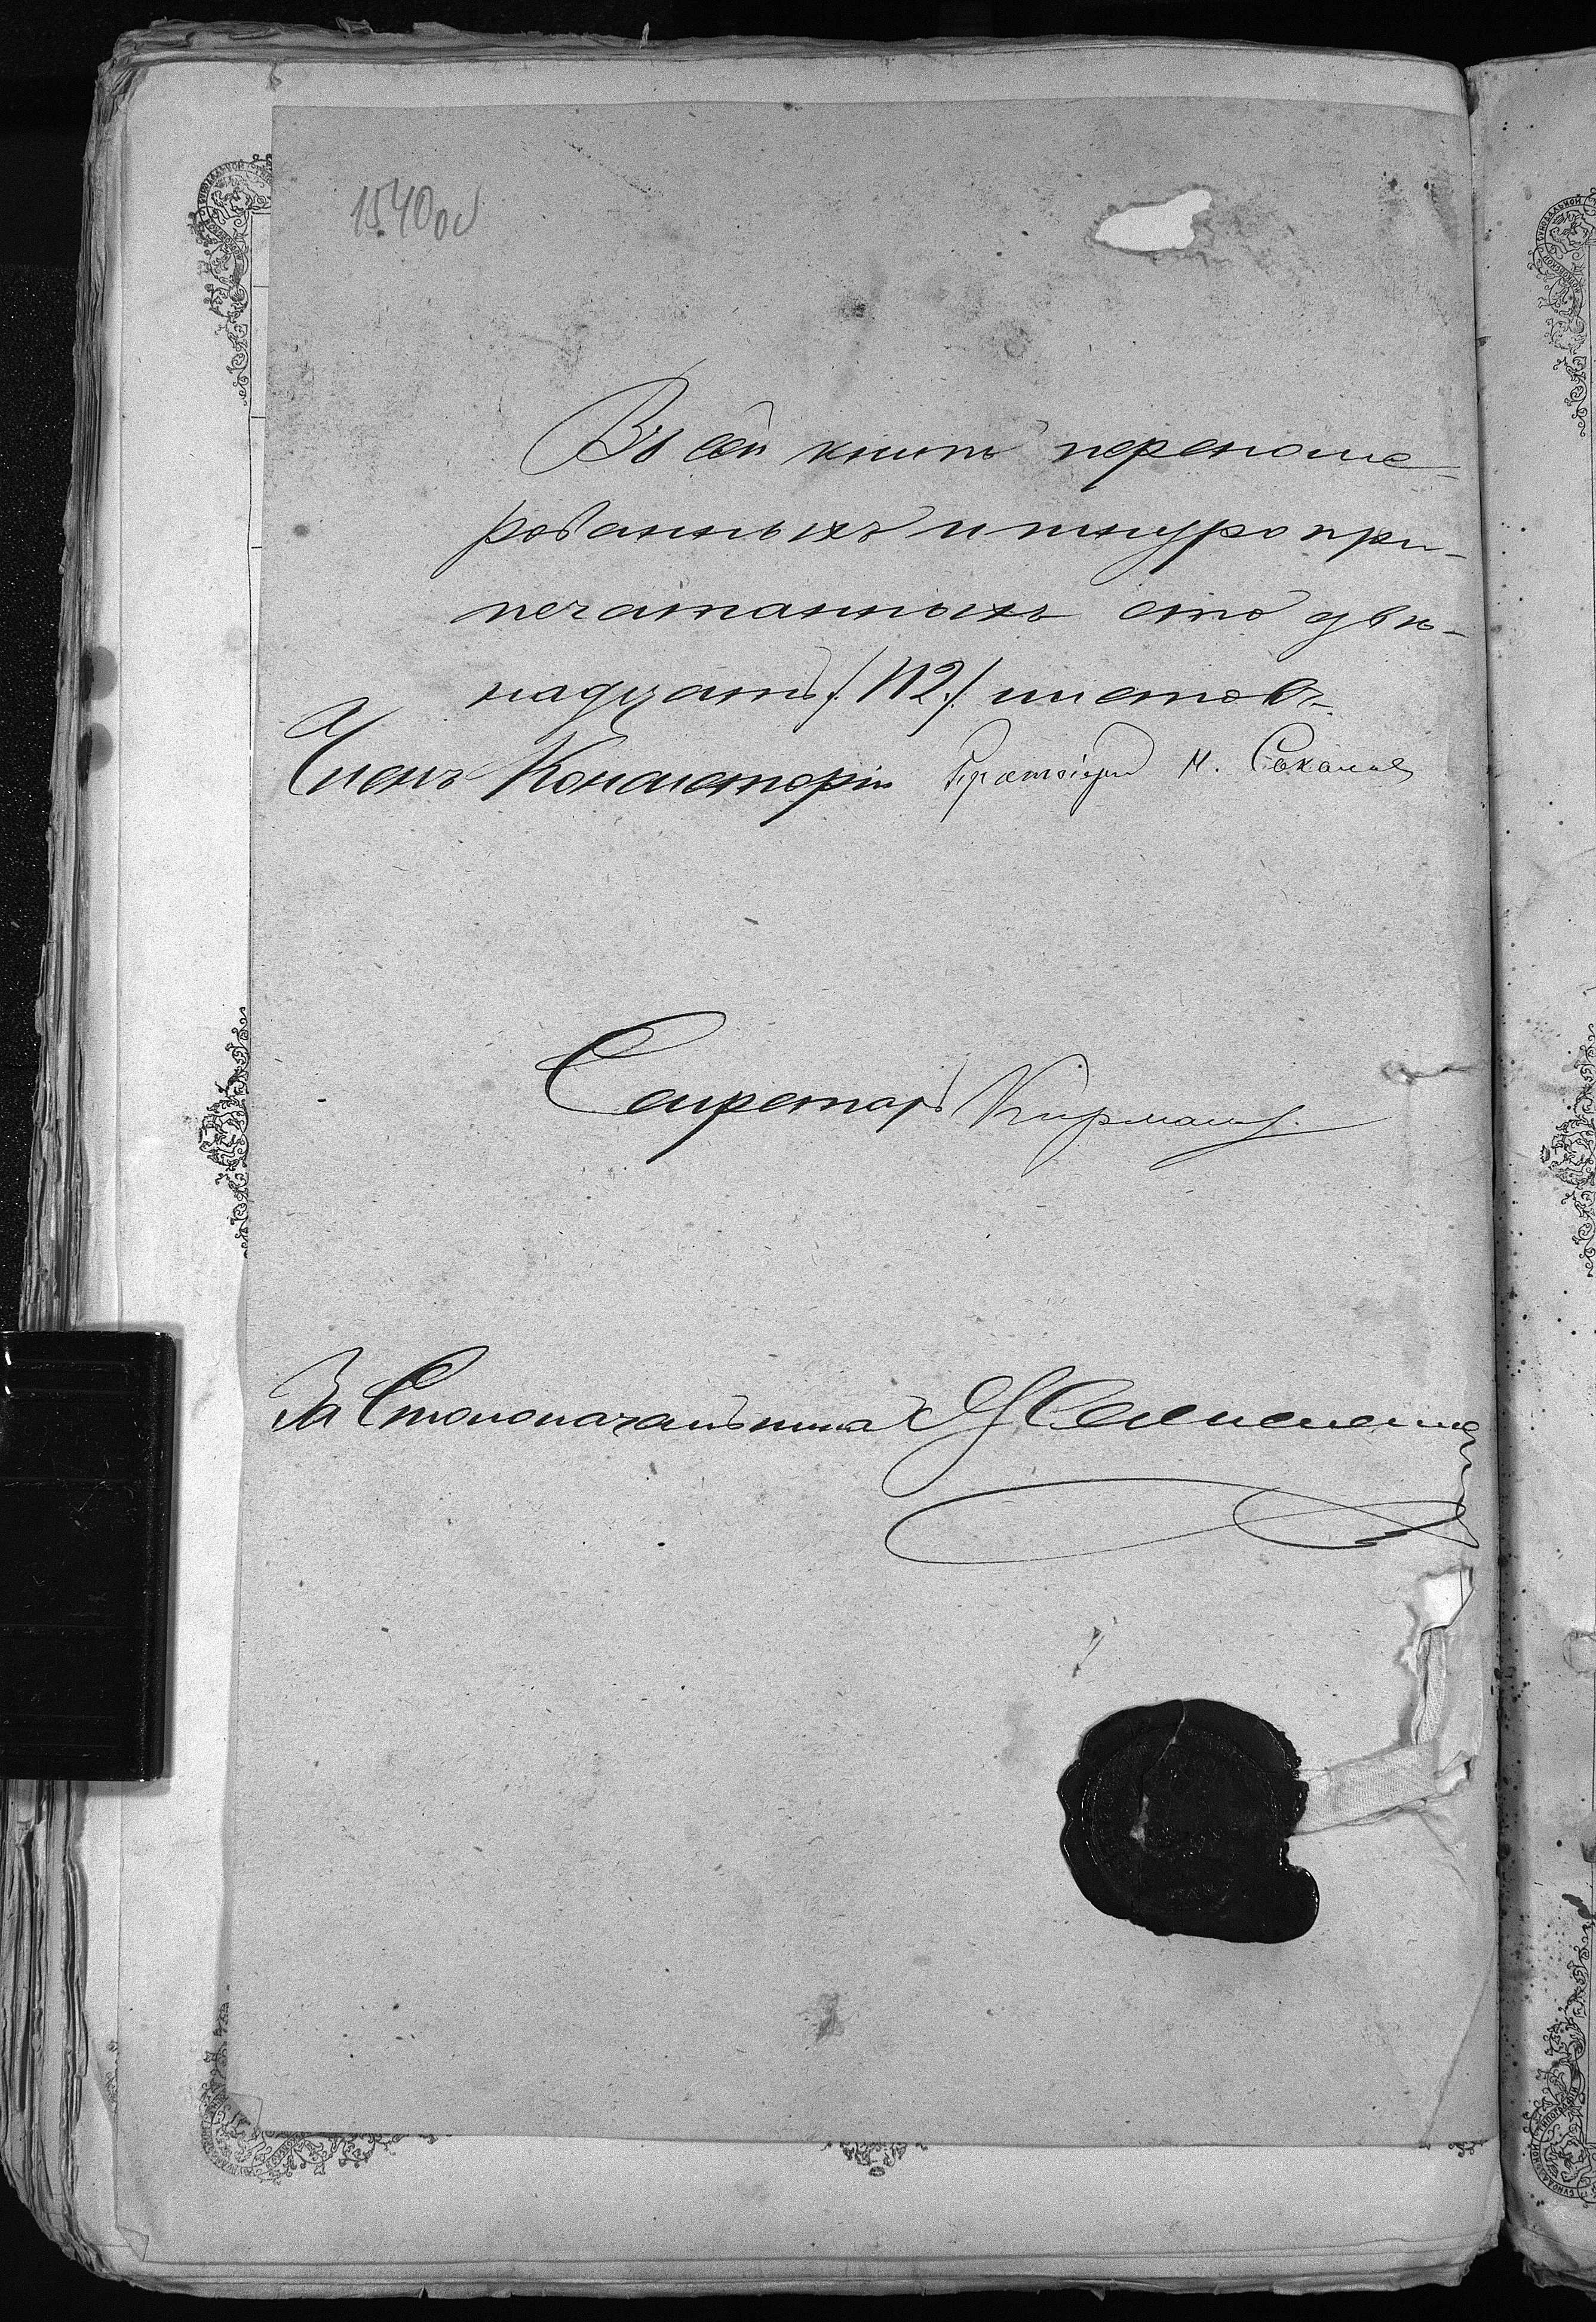 1540об
Въ сей книгѣ перенуме-
рованныхъ и шнуропри-
печатанныхъ сто двѣ-
надцать /112/ листовъ.
Членъ Консисторіи Протоіерей Н. Соколовъ
Секретарь
За Столоначальника